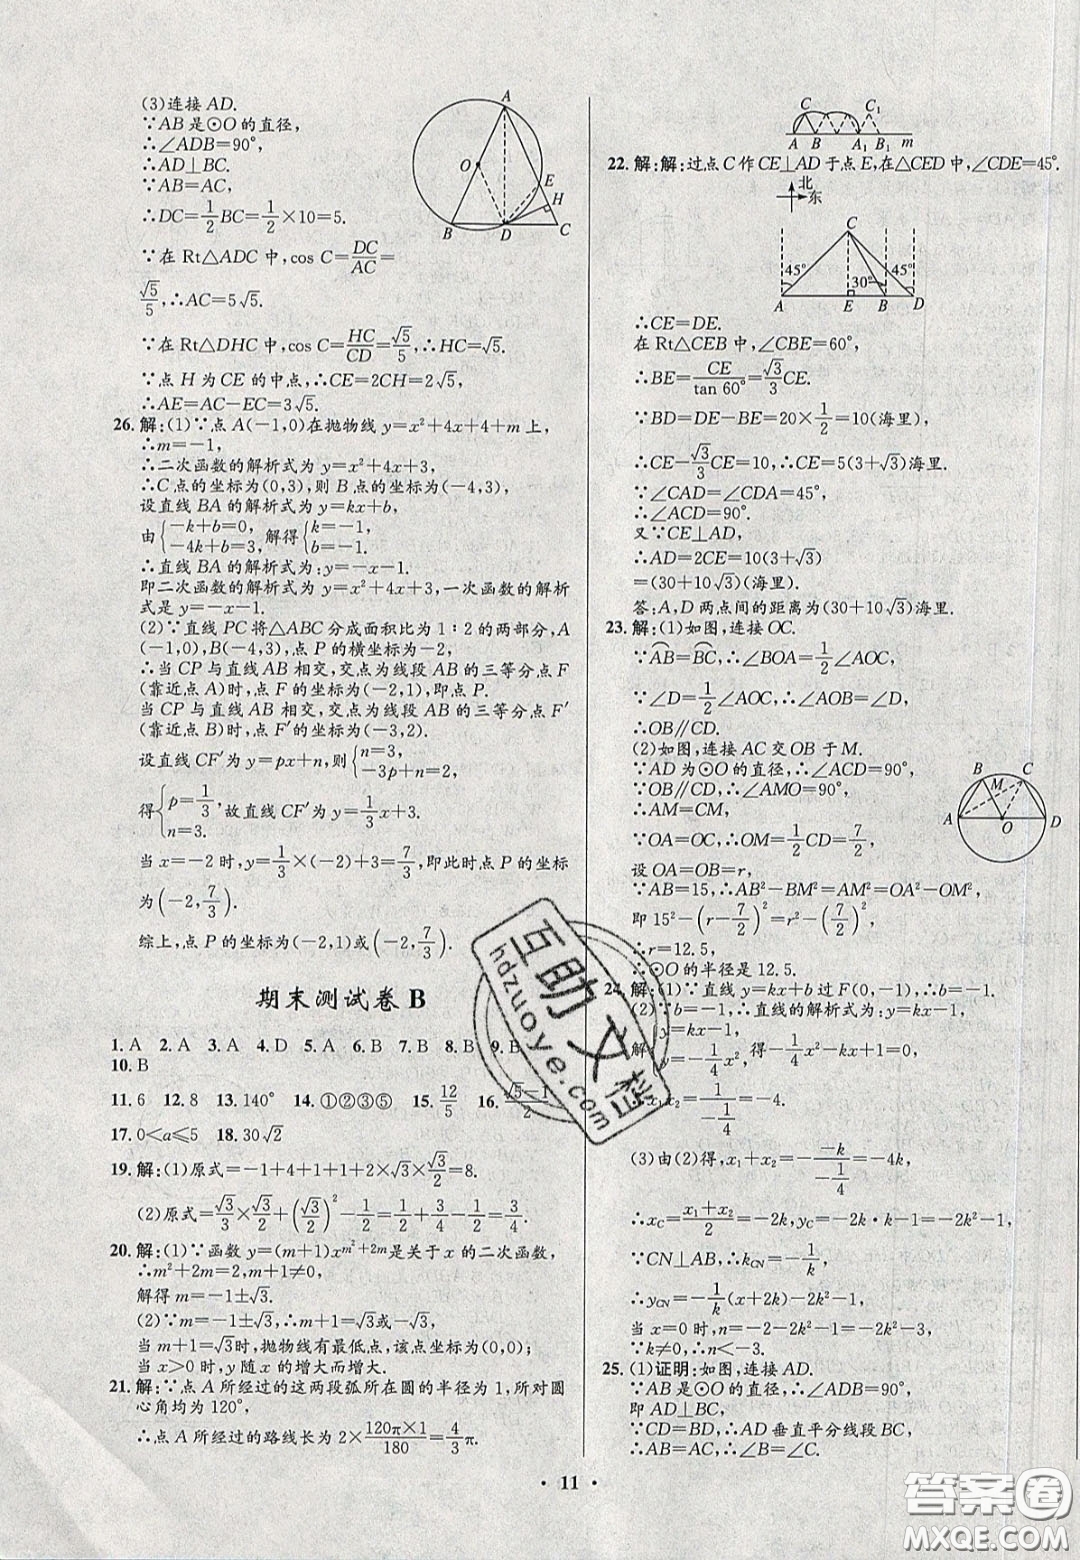 (3)连接 AD.
∵AB 是⊙O 的直径,
∴∠ADB=90°,
∴AD⊥BC.
∵AB=AC,
∴DC=1/2BC=1/2×10=5.
∵在 Rt△ADC 中,cos C=DC/AC=
√5/5,∴AC=5√5.
∵在 Rt△DHC 中,cos C=HC/CD=√5/5,∴HC=√5.
∵点 H 为 CE 的中点,∴CE=2CH=2√5,
∴AE=AC-EC=3√5.
A
O
E
H
B
D
C
26.解:(1)∵点 A(-1,0)在抛物线 y=x²+4x+4+m 上,
∴m=-1,
∴二次函数的解析式为 y=x²+4x+3,
∴C 点的坐标为(0,3),则 B 点的坐标为(-4,3),
设直线 BA 的解析式为 y=kx+b,
由{-k+b=0, -4k+b=3, 解得{k=-1, b=-1.
∴直线 BA 的解析式为:y=-x-1.
即二次函数的解析式为 y=x²+4x+3,一次函数的解析
式是 y=-x-1.
(2)∵直线 PC 将△ABC 分成面积比为 1∶2 的两部分,A
(-1,0),B(-4,3),点 P 的横坐标为-2,
∴当 CP 与直线 AB 相交,交点为线段 AB 的三等分点 F
(靠近点 A)时,点 F 的坐标为(-2,1),即点 P.
当 CP 与直线 AB 相交,交点为线段 AB 的三等分点 F′
(靠近点 B)时,点 F′的坐标为(-3,2).
设直线 CF′为 y=px+n,则{n=3, -3p+n=2,
得{p=1/3, n=3. 故直线 CF′为 y=1/3x+3.
当 x=-2 时,y=1/3×(-2)+3=7/3,即此时点 P 的坐标
为(-2,7/3).
综上,点 P 的坐标为(-2,1)或(-2,7/3).
期末测试卷 B
1.A 2.A 3.A 4.D 5.A 6.B 7.B 8.B 9.B
10.B
11.6 12.8 13.140° 14.①②③⑤ 15.12/5 16.(√5-1)/2
17.0<a≤5 18.30√2
19.解:(1)原式=-1+4+1+1+2×√3×√3/2=8.
(2)原式=√3/3×√3/2+(√3/2)²-1/2=1/2+3/4-1/2=3/4.
20.解:(1)∵函数 y=(m+1)x^(m²+2m)是关于 x 的二次函数,
∴m²+2m=2,m+1≠0,
解得 m=-1±√3.
(2)∵m=-1±√3,∴m+1=√3或-√3,
当 m+1=√3时,抛物线有最低点,该点坐标为(0,0);
当 x>0 时,y 随 x 的增大而增大.
21.解:∵点 A 所经过的这两段弧所在圆的半径为 1,所对圆
心角均为 120°,
∴点 A 所经过的路线长为 2×(120π×1)/180=4/3π.
C
C₁
A
B
A₁
B₁
m
22.解:解:过点 C 作 CE⊥AD 于点 E,在△CED 中,∠CDE=45°.
北
东
C
45°
30°
45°
A
E
B
D
∴CE=DE.
在 Rt△CEB 中,∠CBE=60°,
∴BE=CE/tan 60°=√3/3CE.
∵BD=DE-BE=20×1/2=10(海里),
∴CE-√3/3CE=10,∴CE=5(3+√3)海里.
∵∠CAD=∠CDA=45°,
∴∠ACD=90°.
又∵CE⊥AD,
∴AD=2CE=10(3+√3)
=(30+10√3)(海里).
答:A,D 两点间的距离为(30+10√3)海里.
23.解:(1)如图,连接 OC.
∵⌒AB=⌒BC,∴∠BOA=1/2∠AOC,
∵∠D=1/2∠AOC,∴∠AOB=∠D,
∴OB∥CD.
(2)如图,连接 AC 交 OB 于 M.
∵AD 为⊙O 的直径,∴∠ACD=90°,
∵OB∥CD,∴∠AMO=90°,
∴AM=CM,
∵OA=OC,∴OM=1/2CD=7/2,
设 OA=OB=r,
∵AB=15,∴AB²-BM²=AM²=OA²-OM²,
即 15²-(r-7/2)²=r²-(7/2)²,
∴r=12.5,
∴⊙O 的半径是 12.5.
B
C
M
A
O
D
24.解:(1)∵直线 y=kx+b 过 F(0,-1),∴b=-1.
(2)∵b=-1,∴直线的解析式为:y=kx-1,
解{y=kx-1, y=-1/4x², 得-1/4x²-kx+1=0,
x₂=-1/(1/4)=-4.
(3)由(2)得,x₁+x₂=-(-k)/(-1/4)=-4k,
∴x_C=(x₁+x₂)/2=-2k,y_C=-2k·k-1=-2k²-1,
∵CN⊥AB,∴k_CN=-1/k,
∴y_CN=-1/k(x+2k)-2k²-1,
当 x=0 时,n=-2-2k²-1=-2k²-3,
∵k≠0,∴n<-3.
25.(1)证明:如图,连接 AD.
∵AB 是⊙O 的直径,∴∠ADB=90°,
即 AD⊥BC.
∵CD=BD,∴AD 垂直平分线段 BC,
∴AB=AC,∴∠B=∠C.
• 11 •
互助文档
hdzuoye.com
答案圈
MXQE.COM